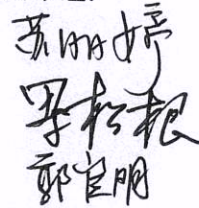 苏丽婷
罗松根
郭宜明